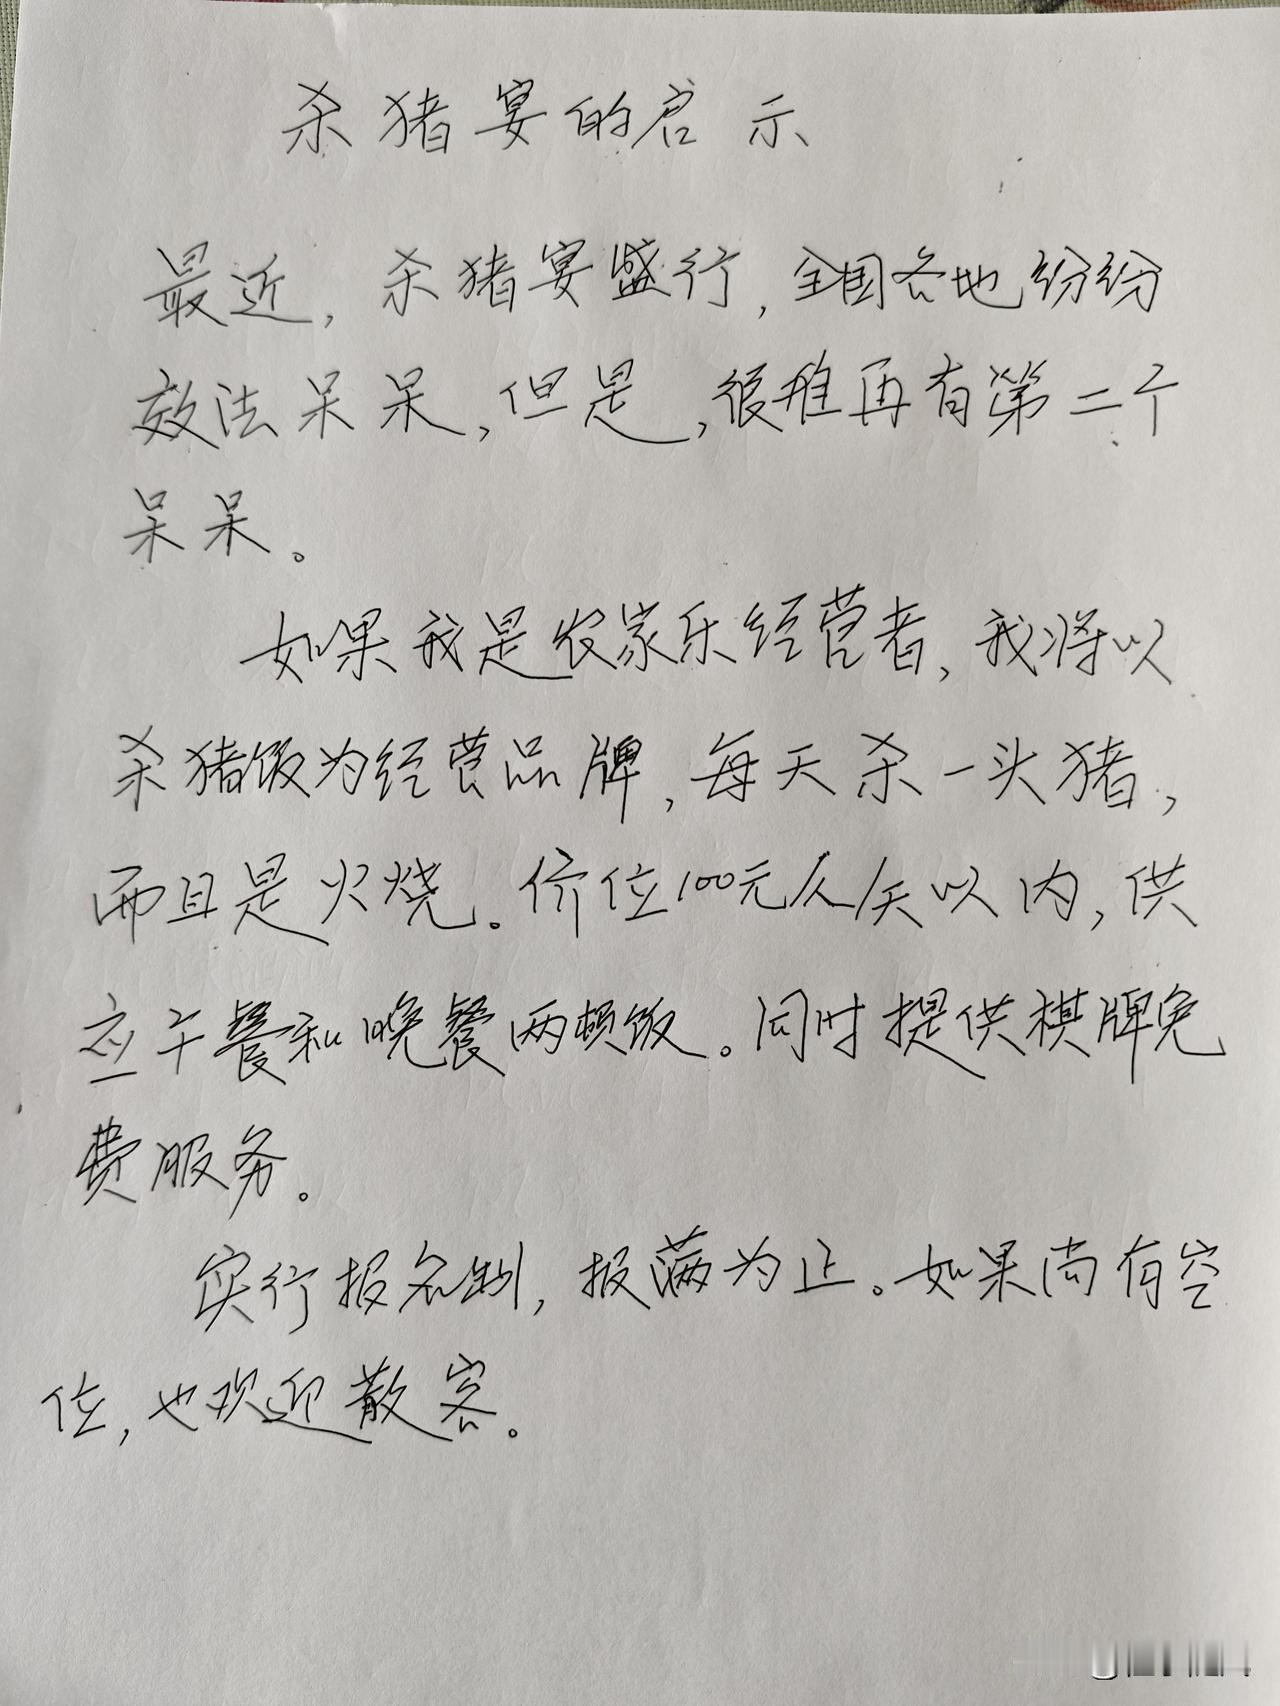 杀猪宴的启示
最近，杀猪宴盛行，全国各地纷纷
效法呆呆，但是，很难再有第二个
呆呆。
如果我是农家乐经营者，我将以
杀猪饭为经营品牌，每天杀一头猪，
而且是火烧。价位100元人/天以内，供
应午餐和晚餐两顿饭。同时提供棋牌免
费服务。
实行报名制，报满为止。如果尚有空
位，也欢迎散客。